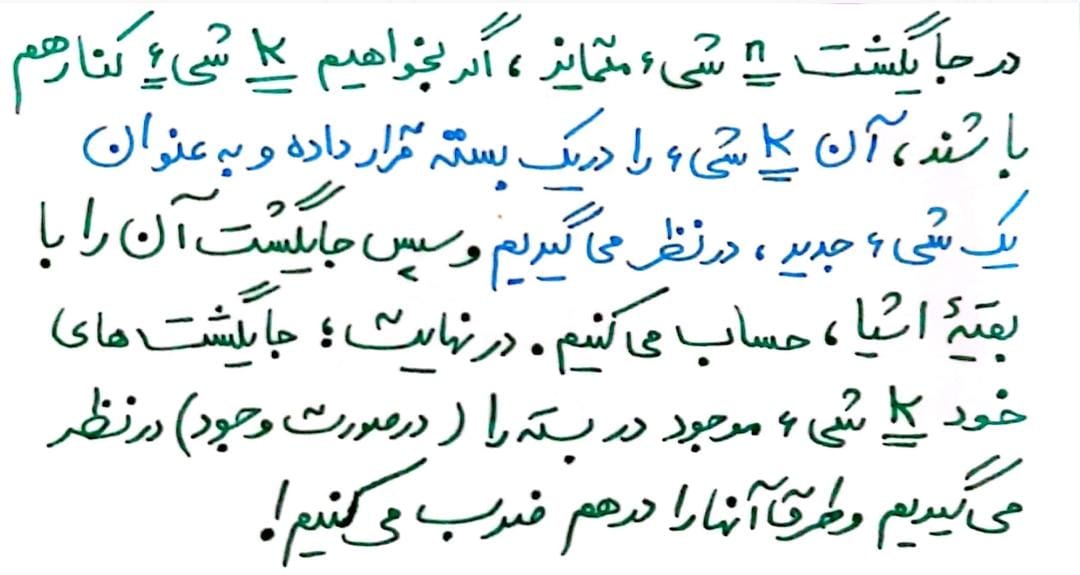 در جایگشت n شیء متمایز ، اگر بخواهیم k شیء کنار هم
باشند ، آن k شیء را در یک بسته قرار داده و به عنوان
یک شیء جدید ، در نظر می گیریم و سپس جایگشت آن را با
بقیهٔ اشیا ، حساب می کنیم . در نهایت ؛ جایگشت های
خود k شیء موجود در بسته را ( در صورت وجود ) در نظر
می گیریم و طرق آنها را در هم ضرب می کنیم !